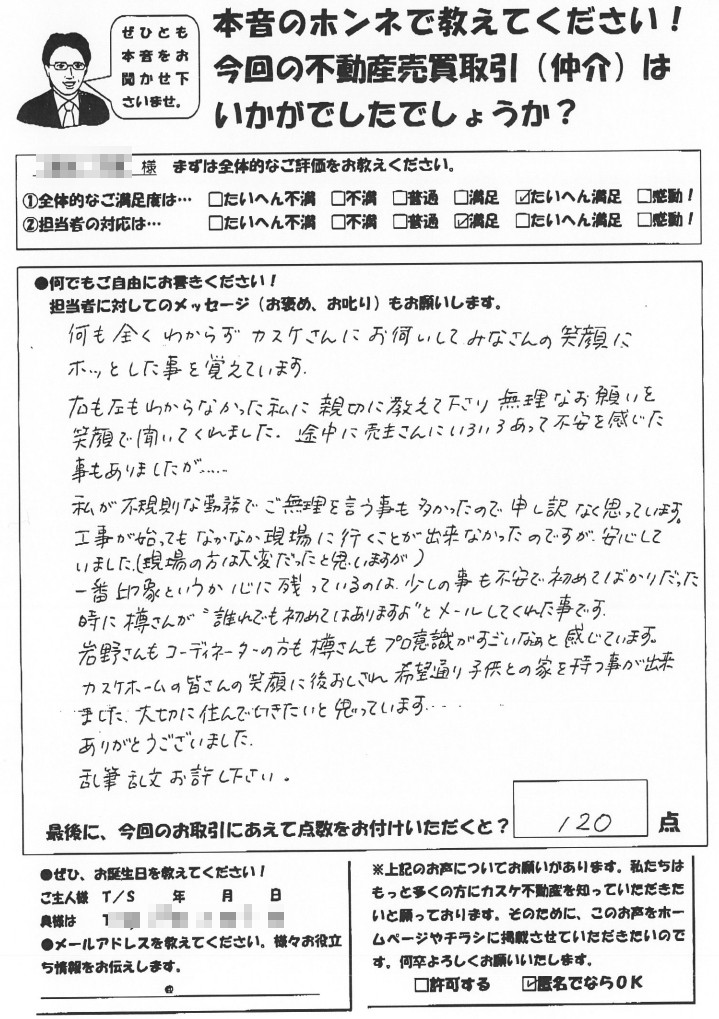 ぜひとも
本音をお
聞かせ下
さいませ。
本音のホンネで教えてください！
今回の不動産売買取引（仲介）は
いかがでしたでしょうか？
様 まずは全体的なご評価をお教えください。
①全体的なご満足度は… □たいへん不満 □不満 □普通 □満足 ☑たいへん満足 □感動！
②担当者の対応は… □たいへん不満 □不満 □普通 ☑満足 □たいへん満足 □感動！
●何でもご自由にお書きください！
担当者に対してのメッセージ（お褒め、お叱り）もお願いします。
何も全くわからず カスケさんにお伺いしてみなさんの笑顔に
ホッとした事を覚えています.
右も左もわからなかった私に 親切に教えて下さり 無理なお願いを
笑顔で聞いてくれました. 途中に売主さんにいろいろあって不安を感じた
事もありましたが.....
私が不規則な勤務でご無理を言う事も多かったので申し訳なく思っています。
工事が始ってもなかなか現場に行くことが出来なかったのですが、安心して
いました.(現場の方は大変だったと思いますが)
一番印象というか心に残っているのは、少しの事も不安で初めてばかりだった
時に樽さんが“誰れでも初めてはありますよ”とメールしてくれた事です.
岩野さんもコーディネーターの方も樽さんもプロ意識がすごいなぁと感じています。
カスケホームの皆さんの笑顔に後おしされ 希望通り子供との家を持つ事が出来
ました. 大切に住んで行きたいと思っています....
ありがとうございました.
乱筆乱文お許し下さい。
最後に、今回のお取引にあえて点数をお付けいただくと？ 120 点
●ぜひ、お誕生日を教えてください！
ご主人様 T／S 年 月 日
奥様は T
●メールアドレスを教えてください。様々お役立
ち情報をお伝えします。
@
※上記のお声についてお願いがあります。私たちは
もっと多くの方にカスケ不動産を知っていただきた
いと願っております。そのために、このお声をホー
ムページやチラシに掲載させていただきたいので
す。何卒よろしくお願いいたします。
□許可する ☑匿名でならOK